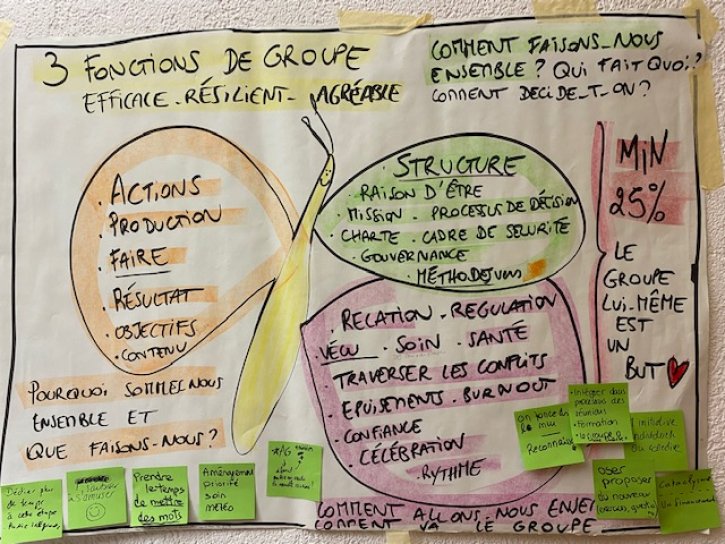 3 FONCTIONS DE GROUPE
EFFICACE - RÉSILIENT - AGRÉABLE
COMMENT FAISONS-NOUS
ENSEMBLE? QUI FAIT QUOI?
COMMENT DÉCIDE-T-ON?
. ACTIONS
. PRODUCTION
. FAIRE
. RÉSULTAT
. OBJECTIFS
. CONTENU
POURQUOI SOMMES NOUS
ENSEMBLE ET
QUE FAISONS-NOUS?
STRUCTURE
. RAISON D'ÊTRE
. MISSION . PROCESSUS DE DÉCISION
. CHARTE . CADRE DE SÉCURITÉ
. GOUVERNANCE
. MÉTHODES
MIN
25%
LE
GROUPE
LUI-MÊME
EST
UN
BUT
. RELATION . REGULATION
. VÉCU . SOIN . SANTÉ
. TRAVERSER LES CONFLITS
. EPUISEMENTS . BURNOUT
. CONFIANCE
. CÉLÉBRATION
. RYTHME
COMMENT ALLONS-NOUS
COMMENT VA LE GROUPE
Dédier plus
de temps
à cette étape
s'amuser
Prendre
le temps
de mettre
des mots
Aménagement
priorité
soin
météo
Reconnaître
. Intégrer dans
processus des
réunions
. formation
initiative
oser
proposer
du nouveau
Un financement